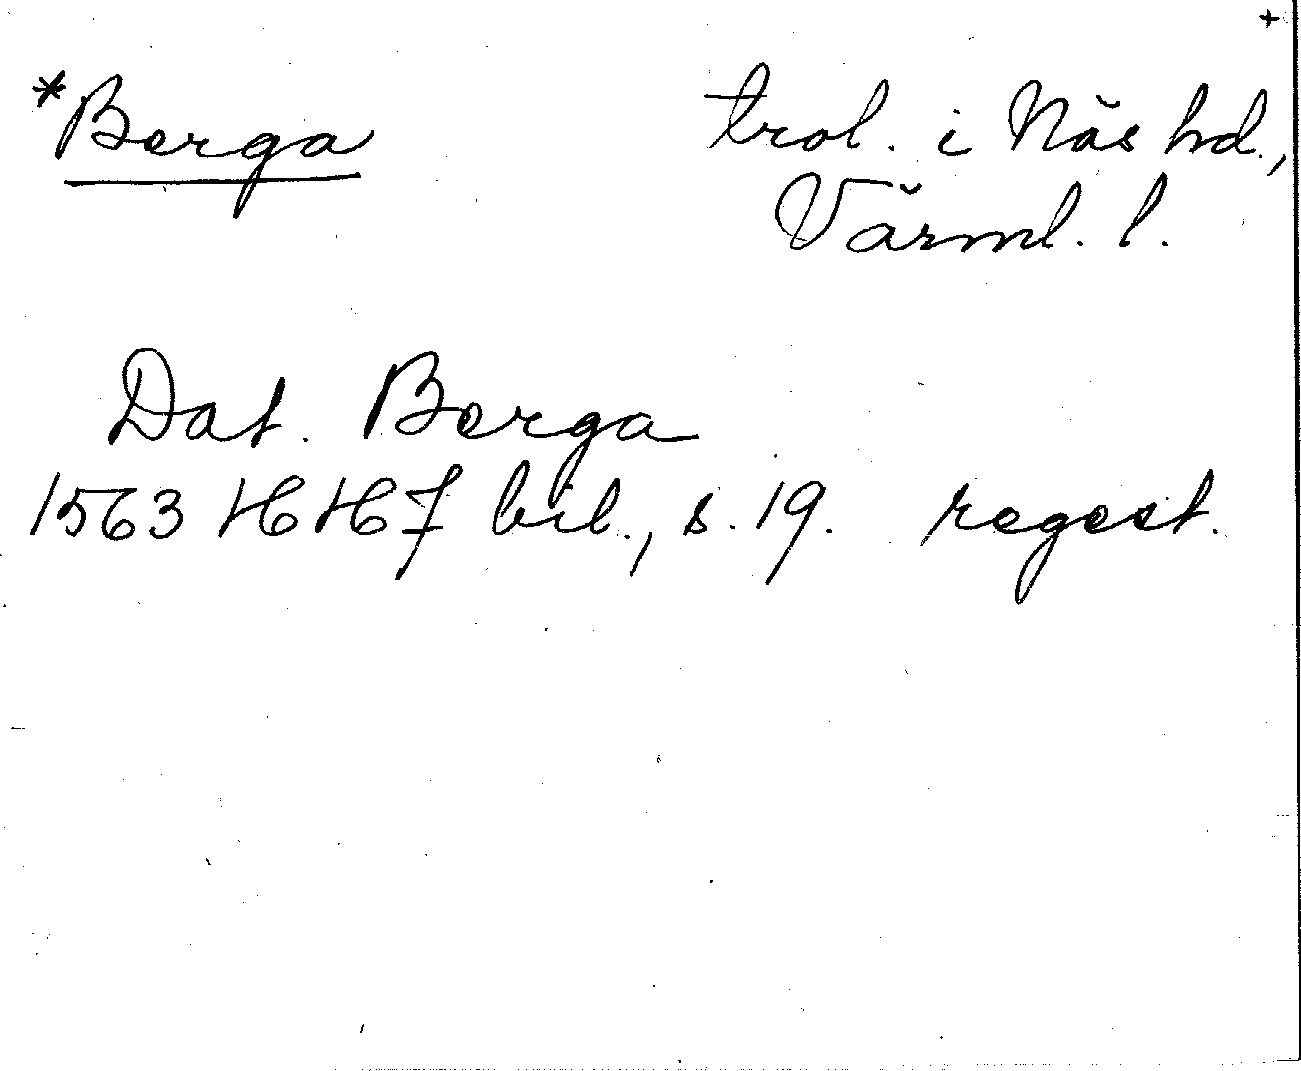 +
*Berga trol. i Näs hd.,
Värml. l.
Dat. Berga
1563 HH7 bil., s. 19. regest.